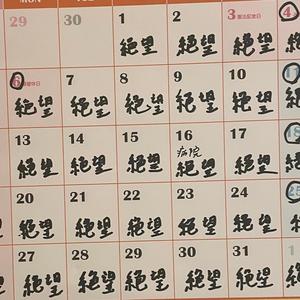 MON
29 30 1 2 3 憲法記念日 4
絶望 絶望 絶望
6 振替休日 7 8 9 10 11
絶望 絶望 絶望 絶望 絶望
13 14 15 16 17 18
病院
絶望 絶望 絶望 絶望 絶望
20 21 22 23 24 25
絶望 絶望 絶望 絶望 絶望
27 28 29 30 31 1
絶望 絶望 絶望 絶望 絶望